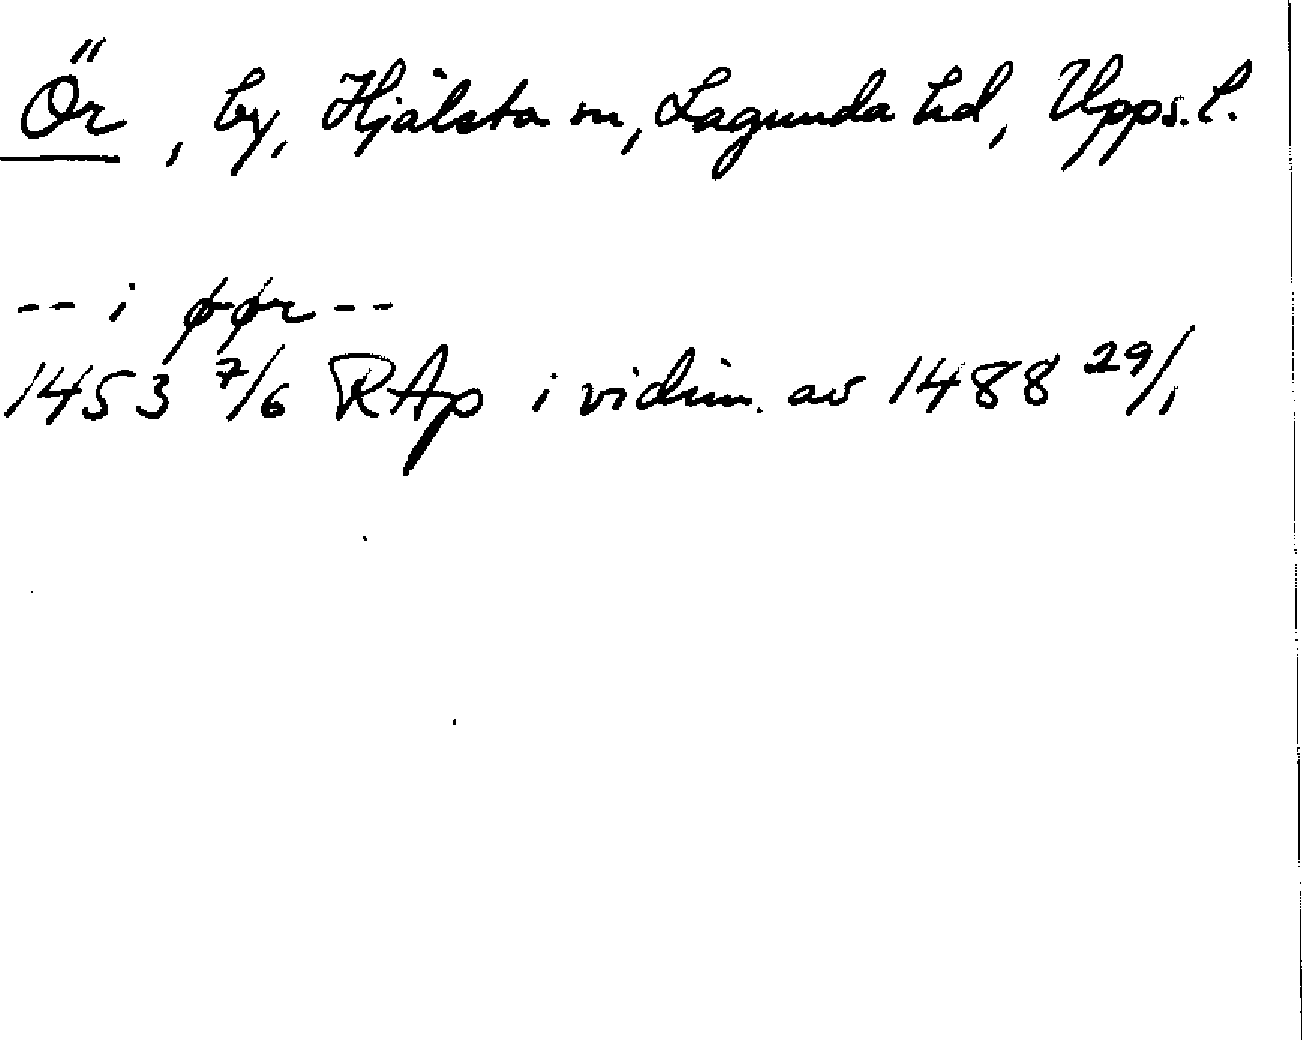 Ör, by, Hjälsta sn, Lagunda hd, Upps. l.
-- i øør --
1453 7/6 RAp i vidim. av 1488 29/1